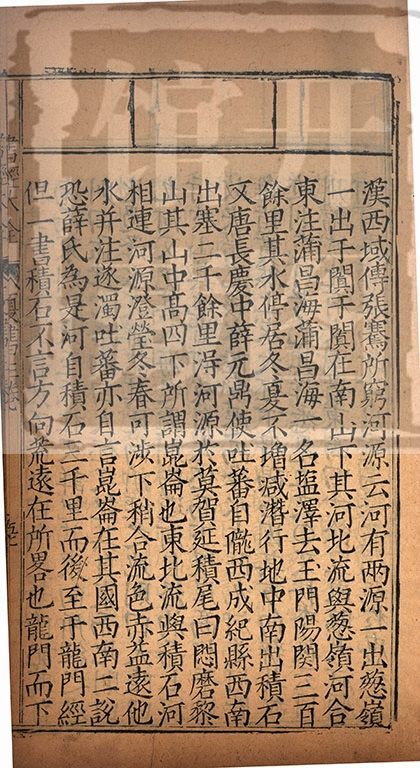 漢西域傳張騫所窮河源云河有兩源一出葱嶺
一出于闐于闐在南山下其河北流與葱嶺河合
東注蒲昌海蒲昌海一名塩澤去玉門陽関三百
餘里其水停居冬夏不增减潜行地中南出積石
文唐長慶中薛元鼎使吐蕃自隴西成紀縣西南
出塞二千餘里得河源於莫賀延積尾曰悶磨黎
山其山中高四下所謂崑崙也東北流與積石河
相連河源澄瑩冬春可渉下稍合流色赤益遠他
水并注遂濁吐蕃亦自言崑崙在其國西南二說
恐薛氏為是河自積石三千里而後至于龍門經
但一書積石不言方向荒遠在所畧也龍門而下
書經大全
夏書